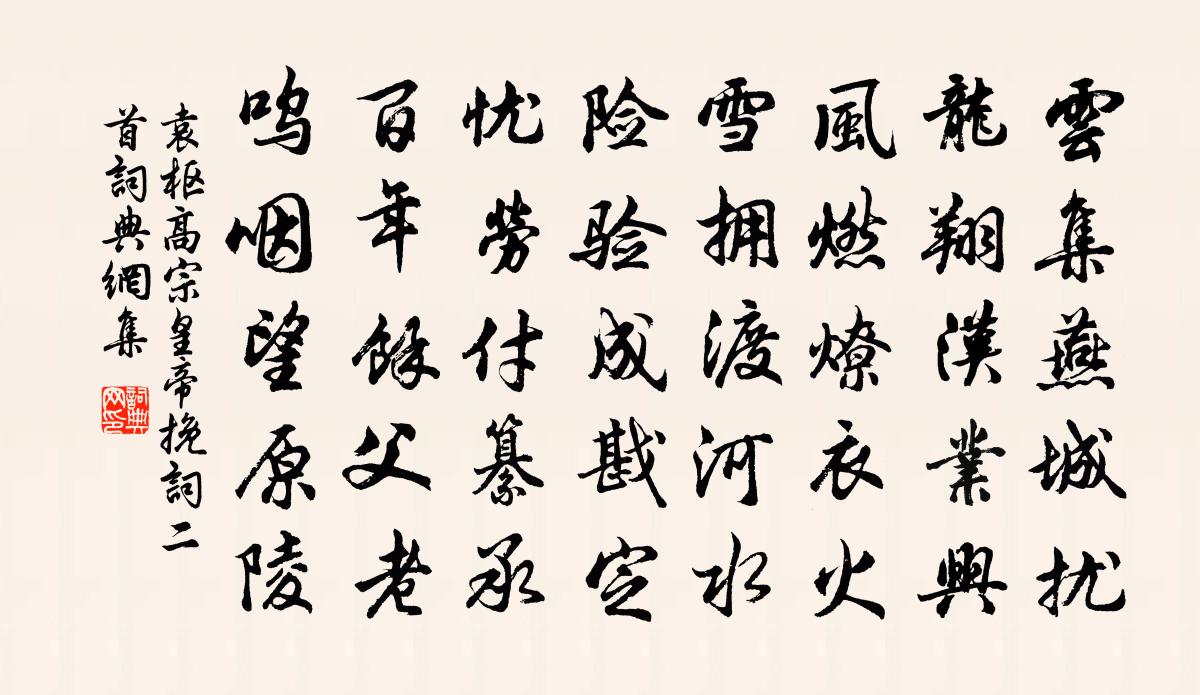 雲集燕城扰
龍翔漢業興
風燃燎衣火
雪拥渡河水
险验成戡定
忧勞付纂承
百年餘父老
鸣咽望原陵
袁枢高宗皇帝挽詞二
首詞典網集
詞典
网印